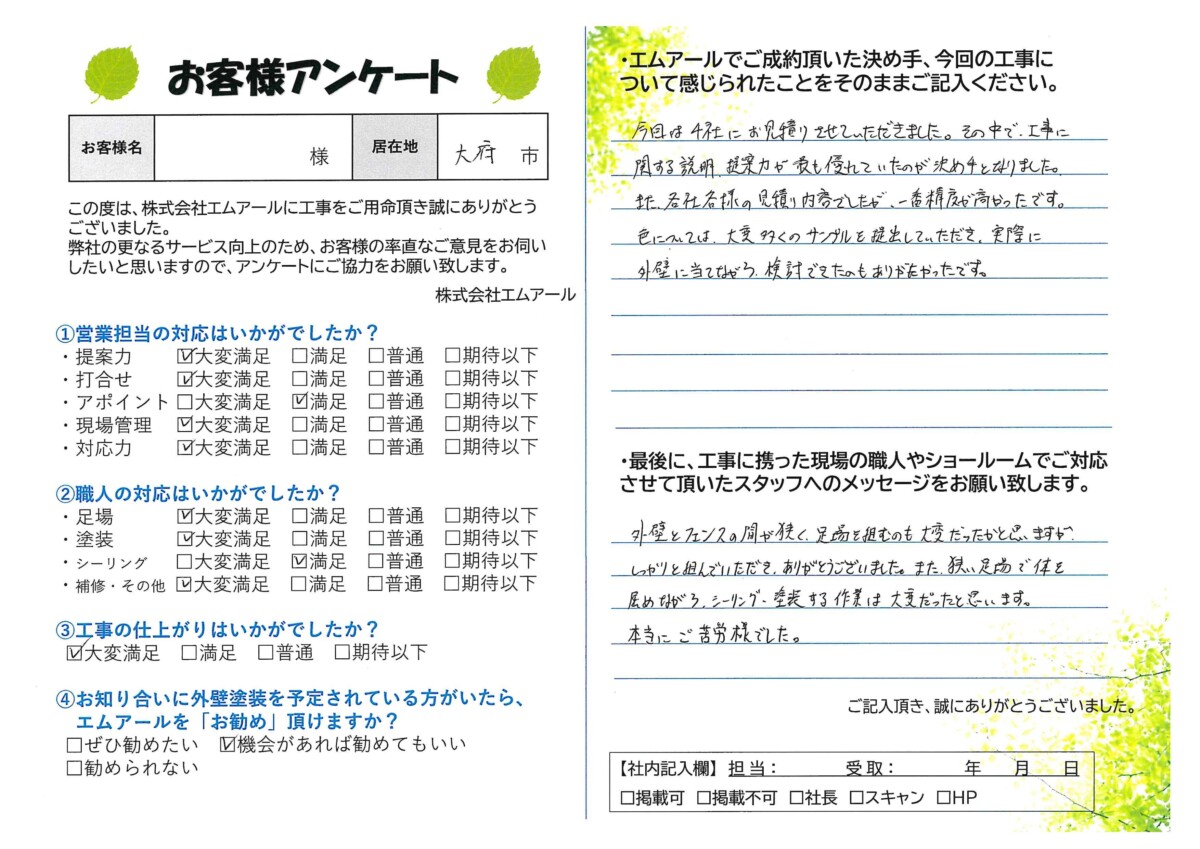 お客様アンケート
お客様名 様 居在地 大府 市
この度は、株式会社エムアールに工事をご用命頂き誠にありがとう
ございました。
弊社の更なるサービス向上のため、お客様の率直なご意見をお伺い
したいと思いますので、アンケートにご協力をお願い致します。
株式会社エムアール
①営業担当の対応はいかがでしたか？
・提案力 ☑大変満足 □満足 □普通 □期待以下
・打合せ ☑大変満足 □満足 □普通 □期待以下
・アポイント □大変満足 ☑満足 □普通 □期待以下
・現場管理 ☑大変満足 □満足 □普通 □期待以下
・対応力 ☑大変満足 □満足 □普通 □期待以下
②職人の対応はいかがでしたか？
・足場 ☑大変満足 □満足 □普通 □期待以下
・塗装 ☑大変満足 □満足 □普通 □期待以下
・シーリング □大変満足 ☑満足 □普通 □期待以下
・補修・その他 ☑大変満足 □満足 □普通 □期待以下
③工事の仕上がりはいかがでしたか？
☑大変満足 □満足 □普通 □期待以下
④お知り合いに外壁塗装を予定されている方がいたら、
エムアールを「お勧め」頂けますか？
□ぜひ勧めたい ☑機会があれば勧めてもいい
□勧められない
・エムアールでご成約頂いた決め手、今回の工事に
ついて感じられたことをそのままご記入ください。
今回は4社にお見積りさせていただきました。その中で、工事に
関する説明、提案力が最も優れていたのが決め手となりました。
また、各社各様の見積り内容でしたが、一番精度が高かったです。
色については、大変多くのサンプルを提出していただき、実際に
外壁に当てながら、検討できたのもありがたかったです。
・最後に、工事に携った現場の職人やショールームでご対応
させて頂いたスタッフへのメッセージをお願い致します。
外壁とフェンスの間が狭く、足場を組むのも大変だったかと思いますが、
しっかりと組んでいただき、ありがとうございました。また、狭い足場で体を
屈めながら、シーリング、塗装する作業は大変だったと思います。
本当にご苦労様でした。
ご記入頂き、誠にありがとうございました。
【社内記入欄】 担当： 受取： 年 月 日
□掲載可 □掲載不可 □社長 □スキャン □HP